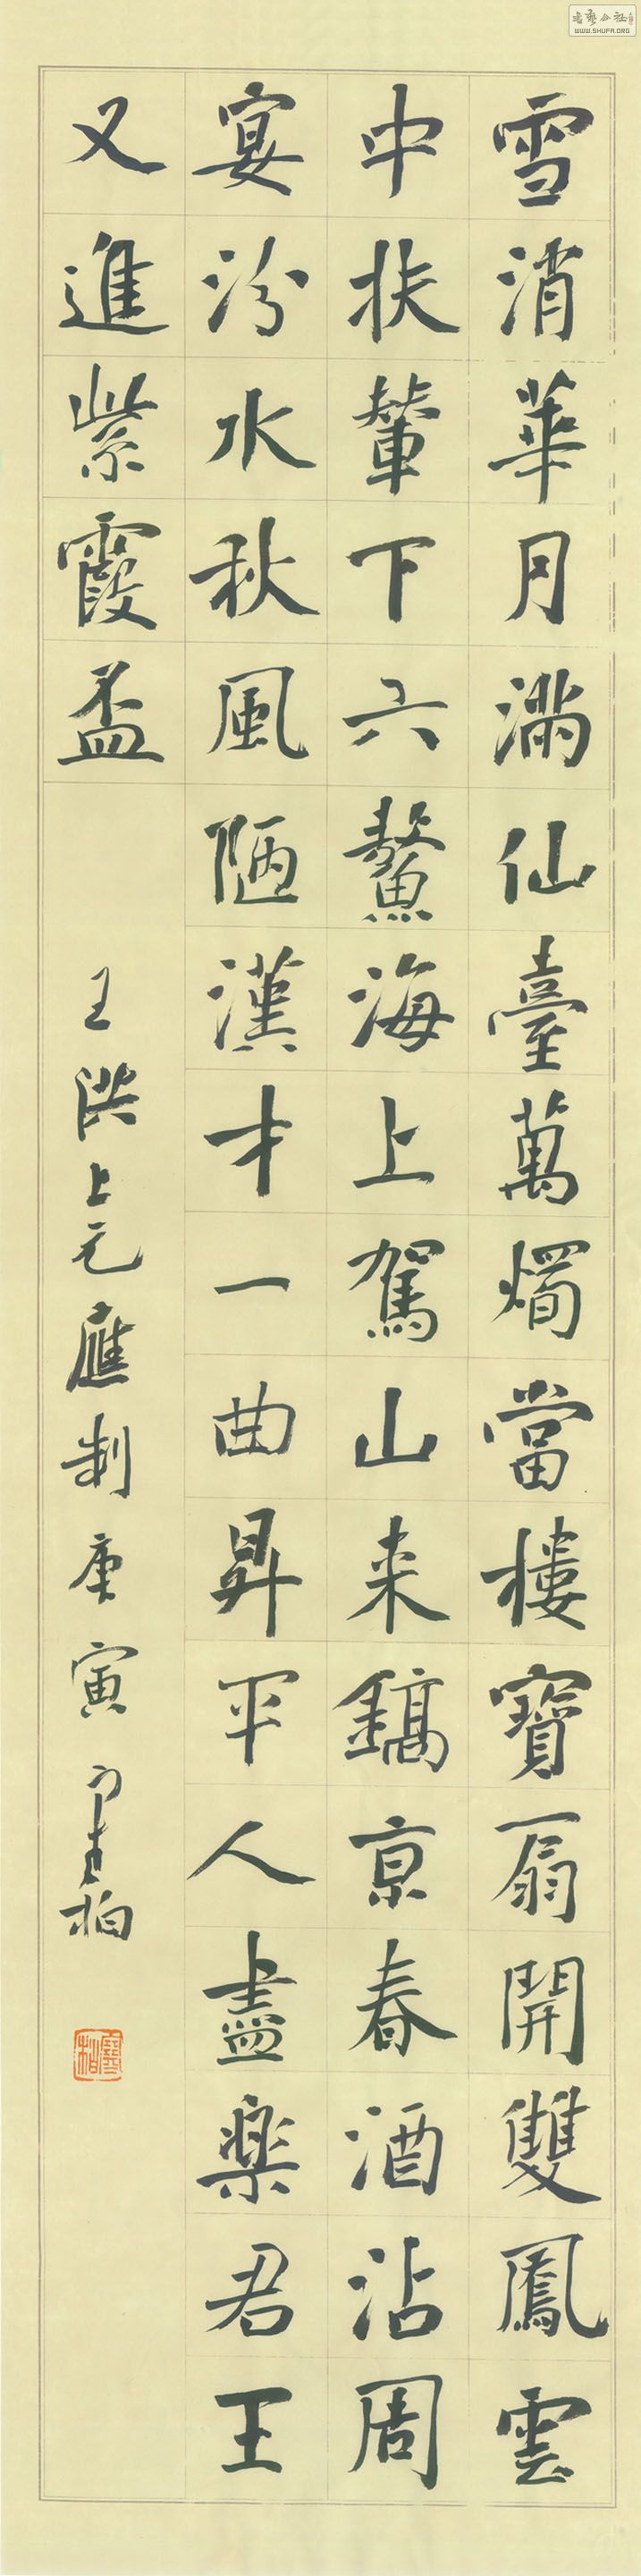 雪消華月滿仙臺萬燭當樓寶扇開雙鳳雲
中扶輦下六鰲海上駕山来鎬京春酒沾周
宴汾水秋風陋漢才一曲昇平人盡樂君王
又進紫霞盃
王珙上元應制庚寅
WWW.SHUFA.ORG